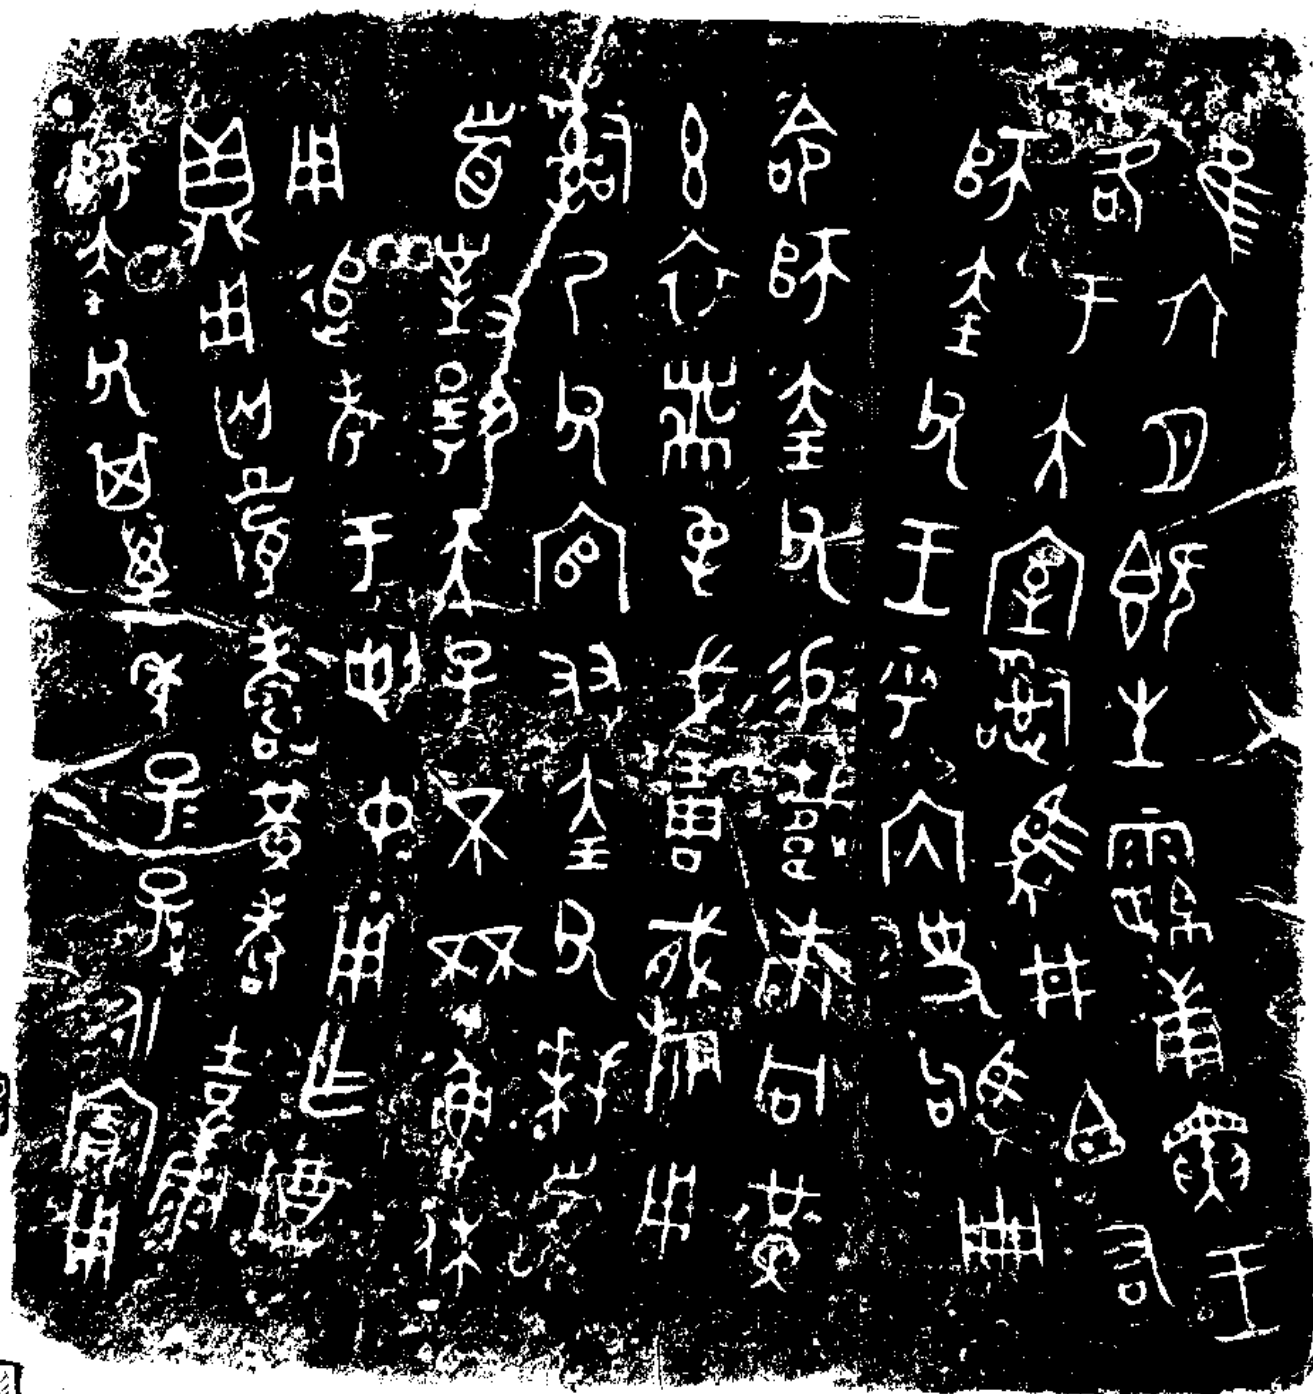 隹六月既生霸庚寅王
各于大室𤔲馬井白右
師奎父王乎內史駒冊
命師奎父易載巿冋黃
玄衣黹屯戈琱㦸旂用
𤔲乃父官友奎父拜𩒨
首對揚天子不㔻魯休
用追考于剌中用乍尊
鼎用匄眉壽黃耇吉康
師奎父其萬年子子孫孫永寶用